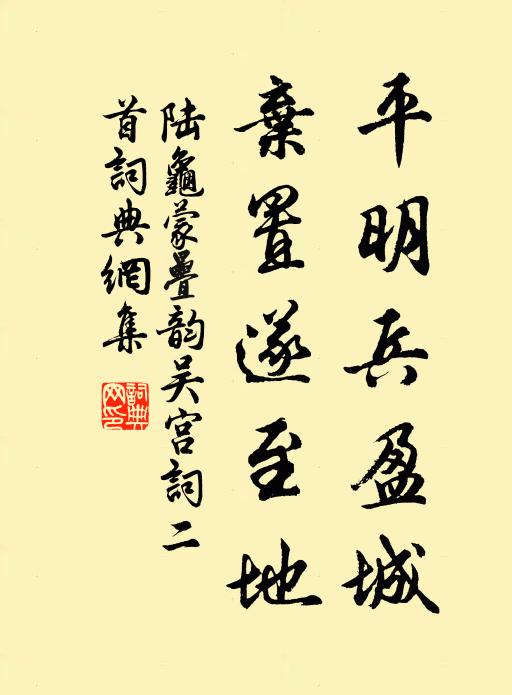 平明兵盈城
棄置遂至地
陆龜蒙疊韵吴宫詞二
首詞典網集
詞典
网印